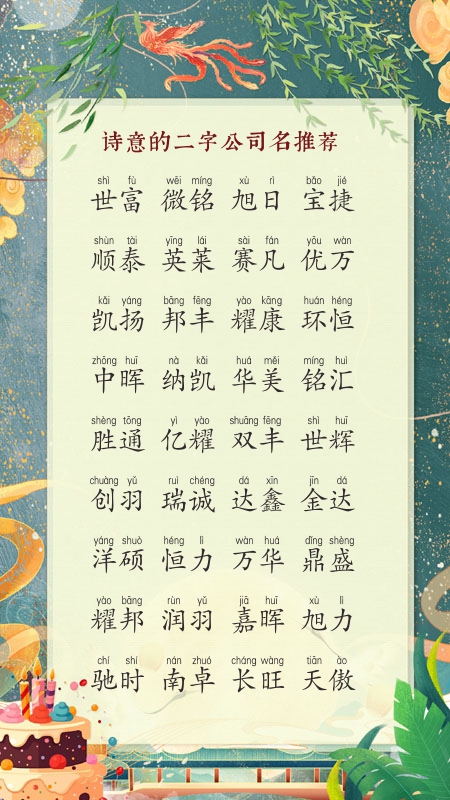 诗意的二字公司名推荐
shì fù wēi míng xù rì bǎo jié
世富 微铭 旭日 宝捷
shùn tài yīng lái sài fán yōu wàn
顺泰 英莱 赛凡 优万
kǎi yáng bāng fēng yào kāng huán héng
凯扬 邦丰 耀康 环恒
zhōng huī nà kǎi huá měi míng huì
中晖 纳凯 华美 铭汇
shèng tōng yì yào shuāng fēng shì huī
胜通 亿耀 双丰 世辉
chuàng yǔ ruì chéng dá xīn jīn dá
创羽 瑞诚 达鑫 金达
yáng shuò héng lì wàn huá dǐng shèng
洋硕 恒力 万华 鼎盛
yào bāng rùn yǔ jiā huī xù lì
耀邦 润羽 嘉晖 旭力
chí shí nán zhuó cháng wàng tiān ào
驰时 南卓 长旺 天傲